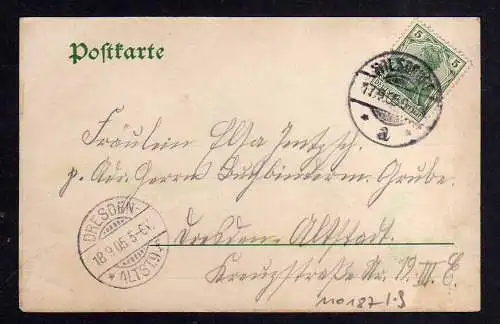 Postkarte
5 5
WILSDRUFF
17.9.05
* a *
Fräulein Elsa Jentzsch.
p. Adr. Herrn Buchbinderm. Grube.
DRESDEN-
18.9.05. 5-6N.
* ALTST. 9.
Dresden-Altstadt.
Kreuzstraße Nr. 19 III. E.
110187 I-J